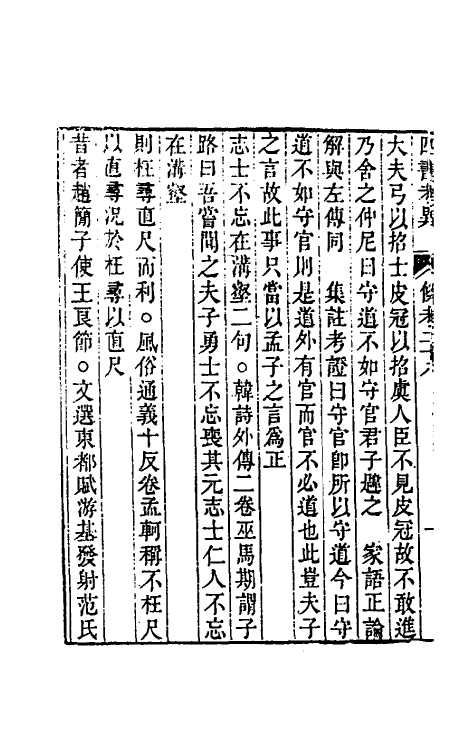 四書考異　條考二十八
大夫弓以招士皮冠以招虞人臣不見皮冠故不敢進
乃舍之仲尼曰守道不如守官君子韙之　家語正論
解與左傳同　集註考證曰守官卽所以守道今曰守
道不如守官則是道外有官而官不必道也此豈夫子
之言故此事只當以孟子之言爲正
志士不忘在溝壑二句○韓詩外傳二卷巫馬期謂子
路曰吾嘗聞之夫子勇士不忘喪其元志士仁人不忘
在溝壑
則枉尋直尺而利○風俗通義十反卷孟軻稱不枉尺
以直尋況於枉尋以直尺
昔者趙簡子使王良節○文選東都賦游基發射范氏